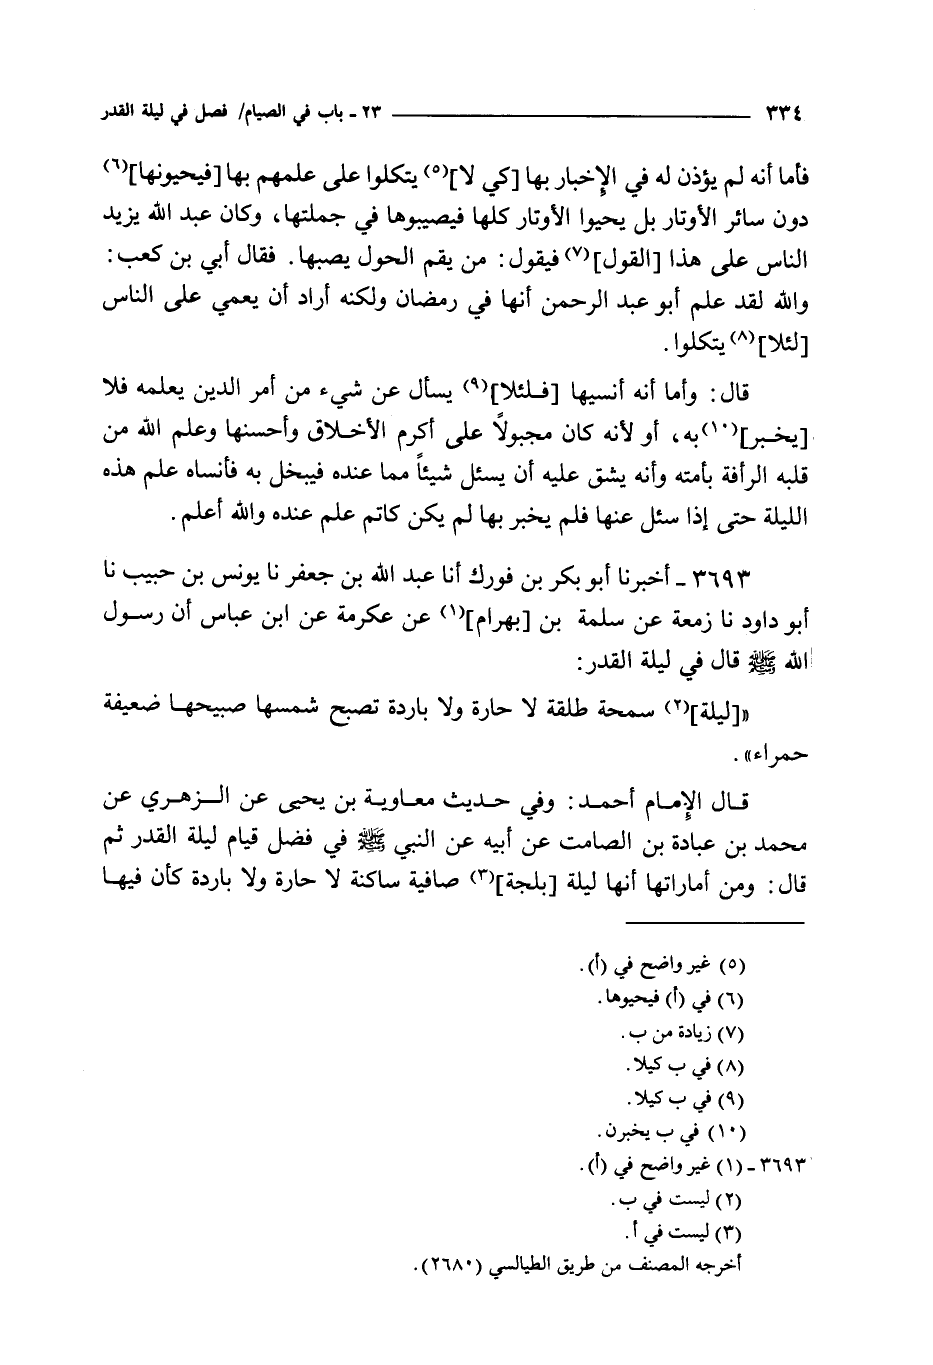 ٣٣٤ ــــــــــــــــــــــــــــ ٢٣ ـ باب في الصيام/ فصل في ليلة القدر
فأما أنه لم يؤذن له في الإخبار بها [كي لا](٥) يتكلوا على علمهم بها [فيحيونها](٦)
دون سائر الأوتار بل يحيوا الأوتار كلها فيصيبوها في جملتها، وكان عبد الله يزيد
الناس على هذا [القول](٧) فيقول: من يقم الحول يصبها. فقال أبي بن كعب:
والله لقد علم أبو عبد الرحمن أنها في رمضان ولكنه أراد أن يعمي على الناس
[لئلا](٨) يتكلوا.
قال: وأما أنه أنسيها [فـلئلا](٩) يسأل عن شيء من أمر الدين يعلمه فلا
[يخبر](١٠) به، أو لأنه كان مجبولاً على أكرم الأخلاق وأحسنها وعلم الله من
قلبه الرأفة بأمته وأنه يشق عليه أن يسئل شيئاً مما عنده فيبخل به فأنساه علم هذه
الليلة حتى إذا سئل عنها فلم يخبر بها لم يكن كاتم علم عنده والله أعلم.
٣٦٩٣ ـ أخبرنا أبو بكر بن فورك أنا عبد الله بن جعفر نا يونس بن حبيب نا
أبو داود نا زمعة عن سلمة بن [بهرام](١) عن عكرمة عن ابن عباس أن رسول
الله ﷺ قال في ليلة القدر:
«[ليلة](٢) سمحة طلقة لا حارة ولا باردة تصبح شمسها صبيحها ضعيفة
حمراء».
قال الإمام أحمد: وفي حديث معاوية بن يحيى عن الزهري عن
محمد بن عبادة بن الصامت عن أبيه عن النبي ﷺ في فضل قيام ليلة القدر ثم
قال: ومن أماراتها أنها ليلة [بلجة](٣) صافية ساكنة لا حارة ولا باردة كأن فيها
(٥) غير واضح في (أ).
(٦) في (أ) فيحيوها.
(٧) زيادة من ب.
(٨) في ب كيلا.
(٩) في ب كيلا.
(١٠) في ب يخبرن.
٣٦٩٣ ـ (١) غير واضح في (أ).
(٢) ليست في ب.
(٣) ليست في أ.
أخرجه المصنف من طريق الطيالسي (٢٦٨٠).